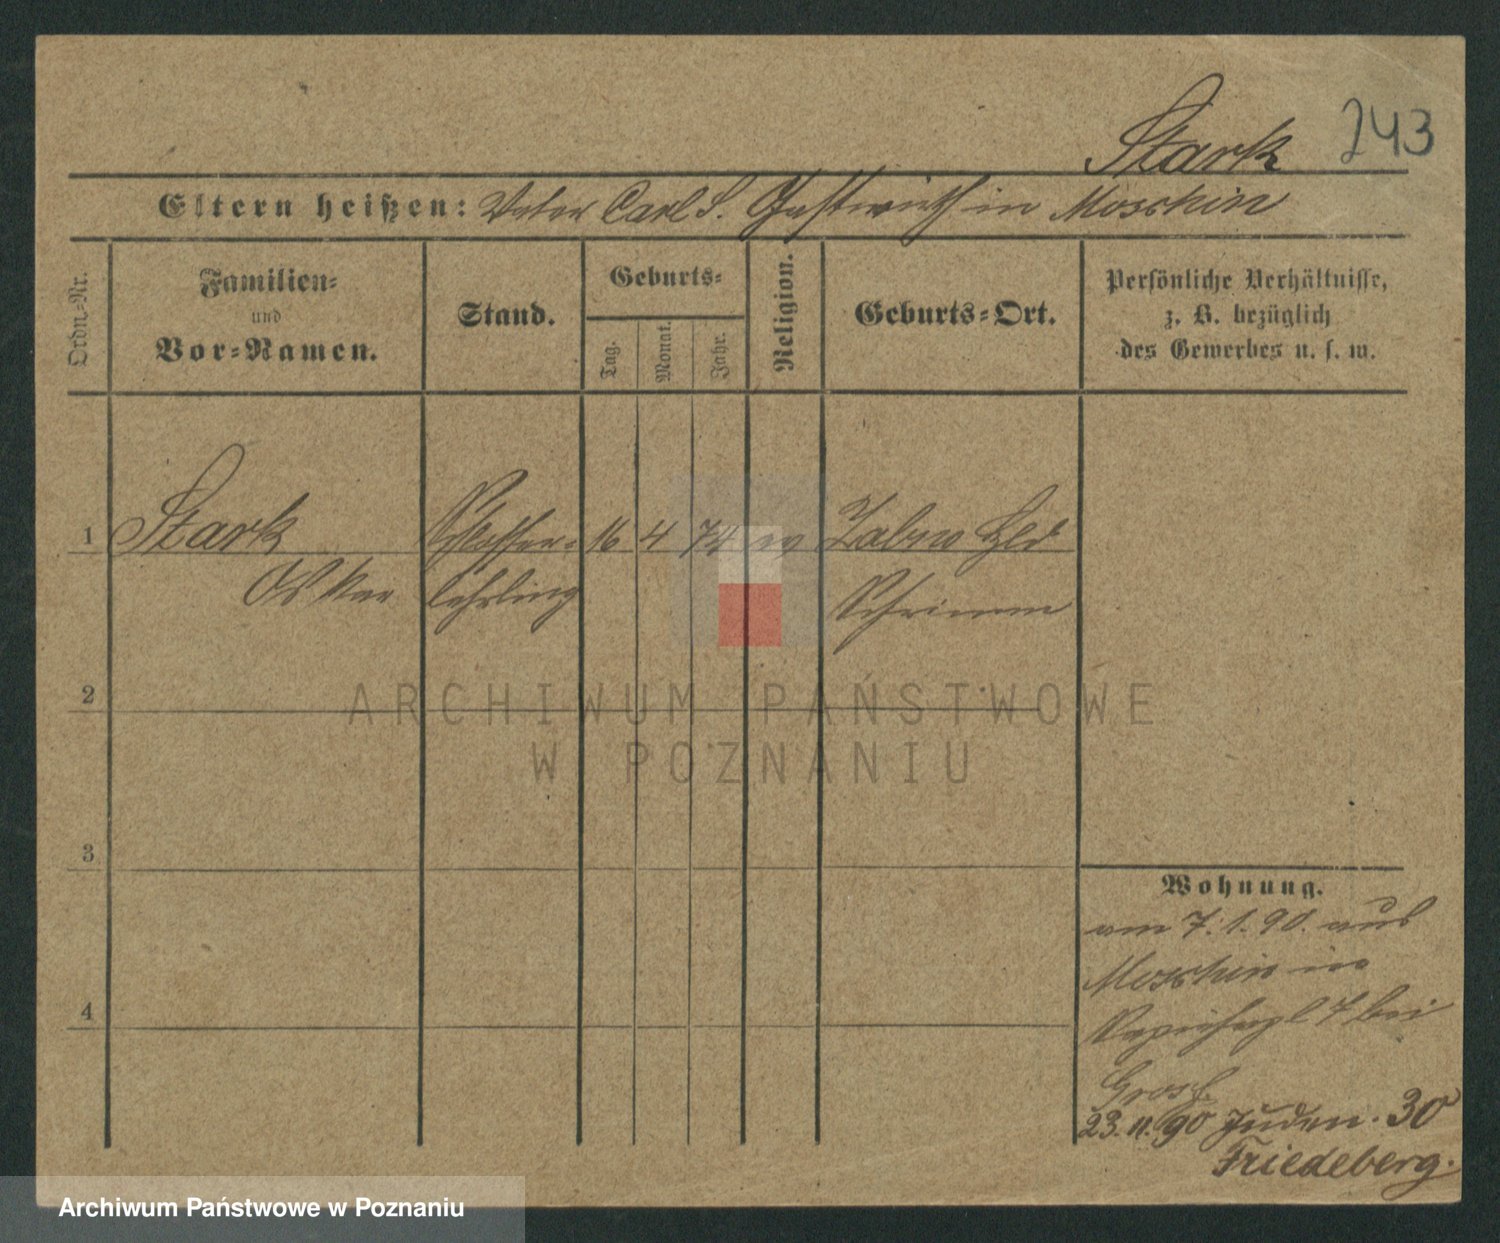 Stark 243
Eltern heißen: Vater Carl S. Gastwirth in Moschin
Ordn.-Nr.
Familien-
und
Vor-Namen.
Stand.
Geburts-
Tag.
Monat.
Jahr.
Religion.
Geburts-Ort.
Persönliche Verhältnisse,
z. B. bezüglich
des Gewerbes u. s. w.
1 Stark Schlosser- 16 4 74 ev Zabno Hld
Oskar lehrling Schrimm
2
3
4
Wohnung.
am 7.1.90. aus
Moschin in
7 bei
23.11.90 Juden. 30
Friedeberg.
ARCHIWUM PAŃSTWOWE
W POZNANIU
Archiwum Państwowe w Poznaniu